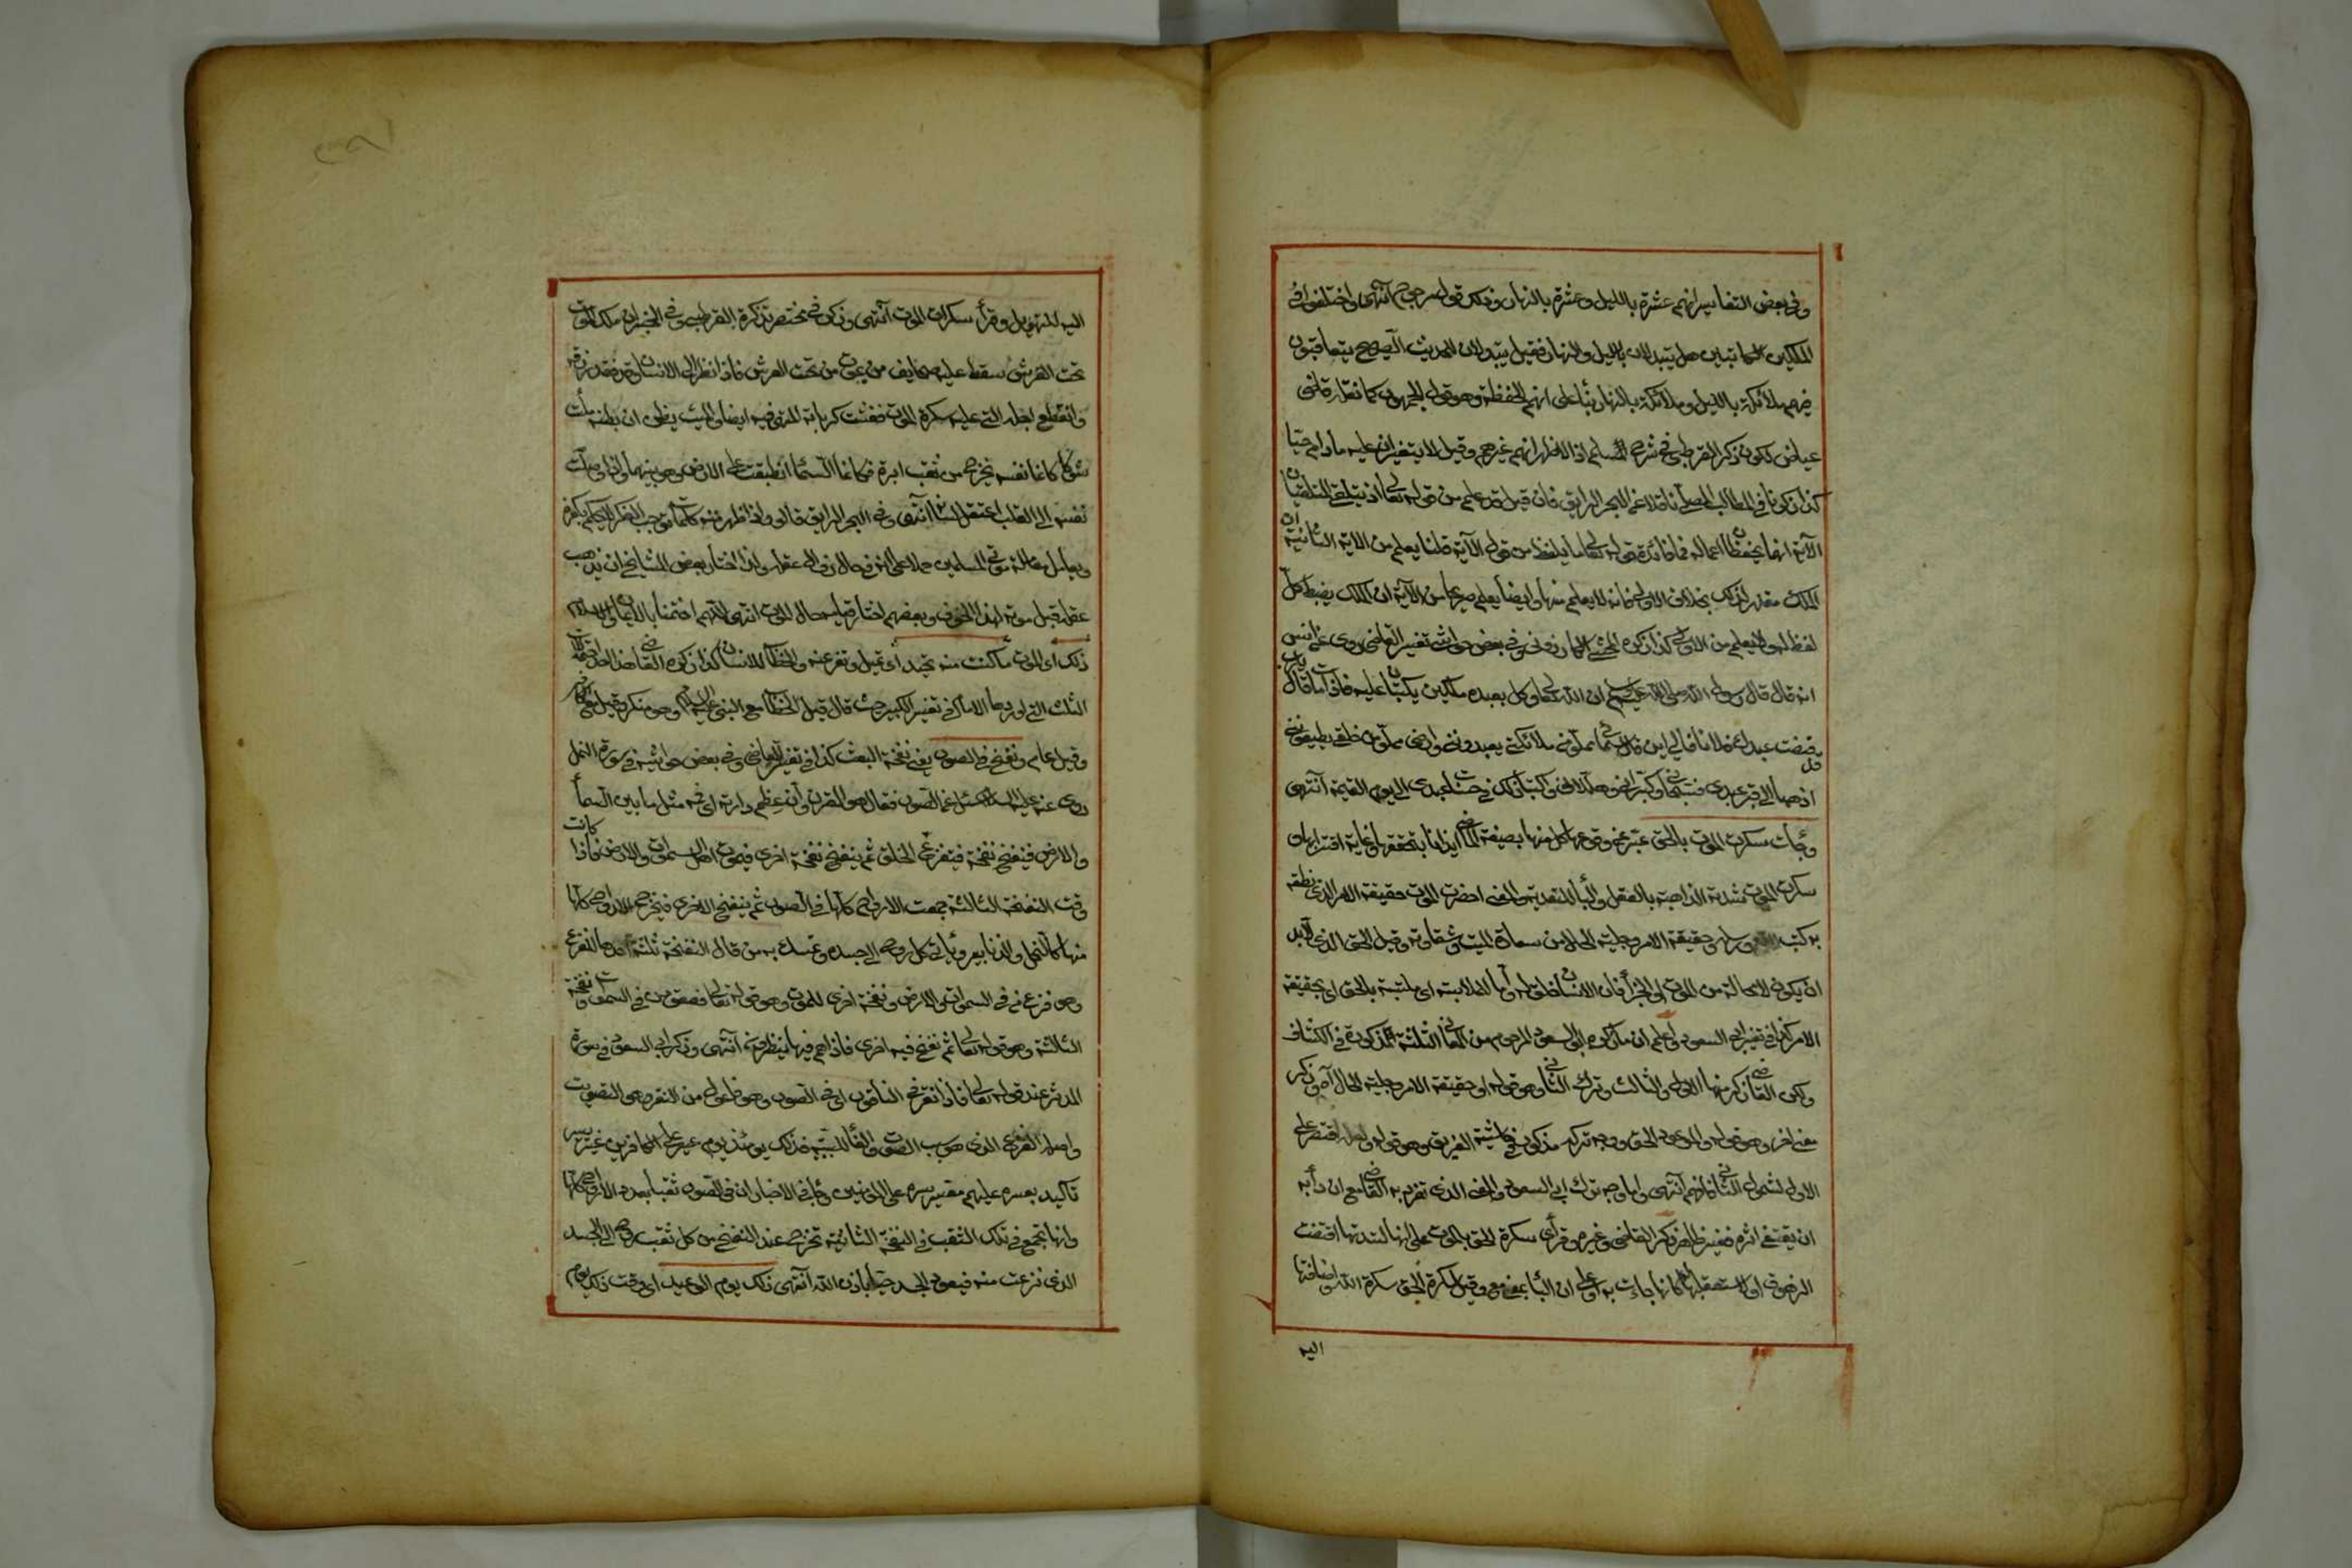 وفى بعض التفاسير انهم عشرة بالليل وعشرة بالنهار وذلك قول مرجوح انتهى واختلفوا فى
الملكين الكاتبين هل يتبدلان بالليل والنهار فقيل يتبدلان لحديث الصحيح يتعاقبون
فيهم ملائكة بالليل وملائكة بالنهار بناء على انهم الحفظة وهو قول الجمهور كما نقله قاضى
عياض لكن ذكر القرطبى فى شرح المسلم اذ الاظهر انهم غيرهم وقيل لا يتغيران عليه مادام حيا
كذا ذكره فى المطالب المصلى ناقلا عن البحر الرايق فان قيل قد علم من قوله تعالى اذ يتلقى المتلقيان
الآية انهما يحفظان اعماله فما فائدة قوله تعالى ما يلفظ من قول الآية قلنا يعلم من الآية الثانية ان
الملك مقدر لذلك بخلاف الاولى فانه لا يعلم منها وايضا يعلم صريحا من الآية ان الملك يضبط كل
لفظ ولا يعلم من الاولى كذا ذكره المحشى الكازرونى وفى بعض حواشى تفسير القاضى روى عن انس
انه قال قال رسول الله صلى الله عليه وسلم ان الله تعالى وكل بعبده ملكين يكتبان عليه فاذا مات قالا يارب
قبضت عبدك فلانا فالى اين قال سمائى مملوة من ملائكتى يعبدوننى وارضى مملوة من خلقى يطيعوننى
اذهبا الى قبر عبدى فسبحانى وكبرانى وهللانى واكتبا ذلك فى حسنات عبدى الى يوم القيمة انتهى
وجأت سكرت الموت بالحق عبر عن وقوعها كل منها بصيغة الماضى ايذانا بتحققها وغاية اقترابها و
سكرت الموت شدته الذاهبة بالعقل والبأ للتعدية والمعنى احضرت الموت حقيقة الامر الذى نطقه
به كتب الله ورسله وحقيقة الامر وجلية الحال من سعادة الميت وشقاوته وقيل الحق الذى لابد
ان يكون لا محالة من الموت او الجزأ فان الانسان خلق له واما للملابسة اى ملتبسة بالحق اى بحقيقة
الامر كذا فى تفسير ابى السعود واعلم ان ما ذكره ابو السعود المرحوم من المعانى الثلثة المذكورة فى الكشاف
ولكن القاضى ذكر منها الاول والثالث وترك الثانى وهو قوله او حقيقة الامر وجلية الحال آه وذكر
معنى اخر وهو قوله والموعود الحق ووجه تركه مذكور فى حاشية الفريق وهو قوله ولعله اقتصر على
الاول لشموله الثانى فافهم انتهى واما وجه ترك ابى السعود والمعنى الذى تفرد به القاضى مع ان دأبه
ان يقتفى اثره فغير ظاهر ذكر القاضى وغيره وقرأ سكرة الحق بالموت على انها لشدتها اقتضت
الزهوق او لاستعقابها له كانها جاءت به او على ان البأ بمعنى مع وقيل سكرة الحق سكرة الله واضافتها
اليه
اليه للتهويل وقرأ سكرات الموت انتهى وذكر فى مختصر تذكرة القرطبى وفى الخبر ان ملك الموت
تحت العرش سقط عليه صحايف من يموت من تحت العرش فاذا نظر الى الانسان قد نفذ رزقه
وانقطع اجله التى عليه سكرة الموت فغشت كرباته المتوفى فيه ايضا والميت يظن ان بطنه ملئت
شوكا كانما نفسه تخرج من ثقب ابرة فكانما السما انطبقت على الارض وهو بينهما واذا وصلت
نفسه الى القلب اعتقل لسانه انتهى وفى البحر الرايق قالوا واذا ظهر منه كلمات توجب الكفر لا يحكم بكفره
ويعامل معاملة موتى المسلمين حملا على انه فى حال زوال عقله ولذا اختار بعض المشايخ ان يذهب
عقله قبل موته لهذا الخوف وبعضهم اختار قيامه حال الموت انتهى اللهم اختمنا بالايمان والاسلام
ذلك اى الموت ما كنت منه تحيد اى تميل وتفر عنه والخطاب للانسان كذا ذكره القاضى
الثلث التى اوردها الامام فى تفسير الكبير حيث قال قيل الخطاب مع النبى عليه السلام وهو منكر وقيل مع الكافر
وقيل عام ونفخ فى الصور يعنى نفخة البعث كذا فى تفسير القاضى وفى بعض حواشيه فى سورة النمل
روى عنه عليه السلام سئل عن الصور فقال هو القرن وان عظم دارته اى فمه مثل ما بين السمأ
والارض فينفخ نفخة فيتفزع الخلق ثم ينفخ نفخة اخرى فيموت اهل السموات والارض فاذا كانت
وقت النفخة الثالثة جمعت الارواح كلها فى الصور ثم ينفخ الاخرى فيخرج الارواح كلها
منها كالنحل والذنابير ويأتى كل روح الى جسده وتمسك به من قال النفخة ثلثة احدها للفزع
وهو فزع من فى السموات والارض ونفخة اخرى للموت وهو قوله تعالى فصعق من فى السموات ونفخة
الثالثة وهو قوله تعالى ثم نفخ فيه اخرى فاذا هم فيها ينظرون انتهى وذكر ابى السعود فى سورة
المدثر عند قوله تعالى فاذا نقر فى الناقور اى فى الصور وهو فاعول من النقر وهو التصويت
واصله القرع الذى هو سبب الصوت والفأ للسببية فذلك يومئذ يوم عسير على الكافرين غير يسير
تأكيد بعسره عليهم مقسر يسره على المؤمنين وجأ فى الاخبار ان فى الصور ثقبا بعدد الارواح كلها
وانها تجمع فى تلك الثقب فى النفخة الثانية تخرج عند النفخ من كل ثقب روح الى الجسد
الذى نزعت منه فيعود الجسد حيا باذن الله انتهى ذلك يوم الوعيد اى وقت ذلك يوم